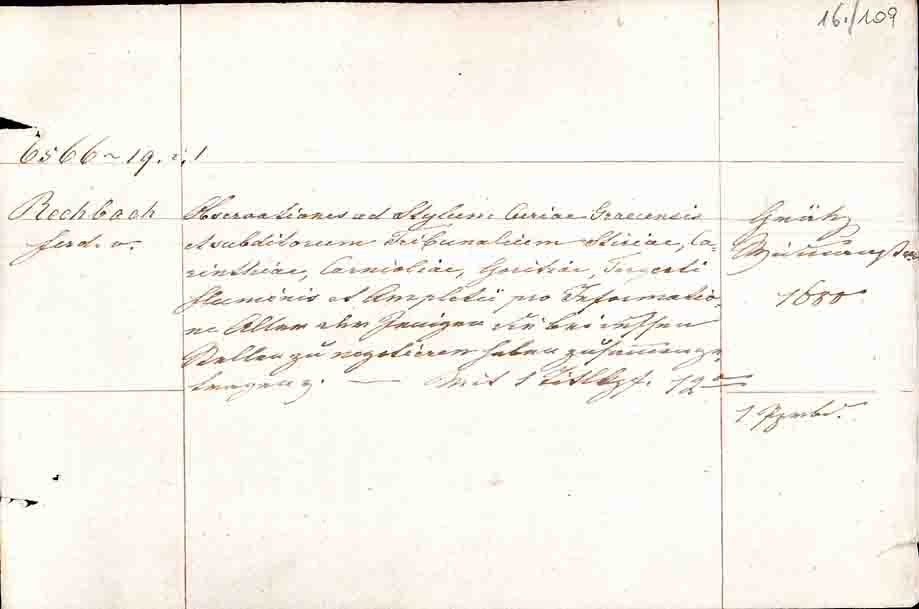 16./109
6566~19. i. 1
Rechbach
Ferd. v.
Observationes ad Stylum Curiae Graecensis
et subditorum Tribunalium Stiriae, Ca=
rinthiae, Carnioliae, Goritiae, Tergesti
Fluminis et Ampletii pro Informatio=
ne Aller der Jenigen die bei dessen
Stellen zu negotieren haben zusamenge=
tragen z. — Mit 1 Titlkpf. 12°
Grätz
Widmanstetter
1680
1 Pgmbd.